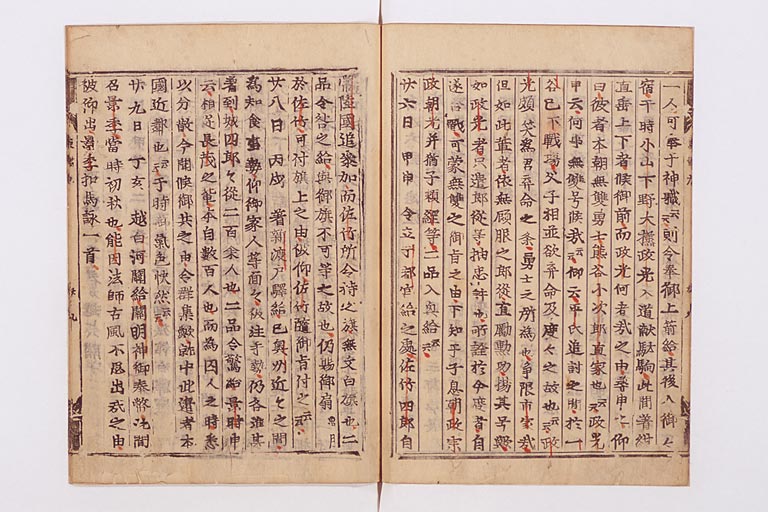 一人可奉于神職云々則令奉御上箭給其後入御々
宿于時小山下野大掾政光入道献駄餉此間着紺
直垂上下者候御前而政光何者哉之由尋申之仰
曰彼者本朝無雙勇士熊谷小次郎直家也云々政光
申云何事無雙号候哉云々仰云平氏追討之間於一
谷已下戦場父子相並欲弃命及度々之故也云々政
光頗笑為君弃命之条勇士之所為也争限直家哉
但如此輩者依無顧眄之郎従直勵勲功揚其号歟
如政光者只遣郎従等抽忠許也所詮於今度者自
遂合戦可蒙無雙之御旨之由下知于子息朝政宗
政朝光并猶子頼綱等二品入興給云々
廿六日 甲申 令立宇都宮給之處佐竹四郎自
常陸國追参加而佐竹所令持之旗無文白旗也二
品令咎之給与御旗不可等之故也仍賜御扇出月
於佐竹可付旗上之由被仰佐竹随御旨付之云々
廿八日 丙戌 着新渡戸驛給已奥州近々之間
為知食軍勢仰御家人等面々被注手勢仍各進其
着到城四郎々従二百余人也二品令驚給景時申
云相従長茂之輩本自数百人也而為囚人之時悉
以分散今聞候御共之由令群集歟就中此邊者本
國近鄰也云々于時御氣色快然云々
廿九日 丁亥 越白河關給關明神御奉幣此間
召景季當時初秋也能因法師古風不思出哉之由
被仰出景季扣馬詠一首